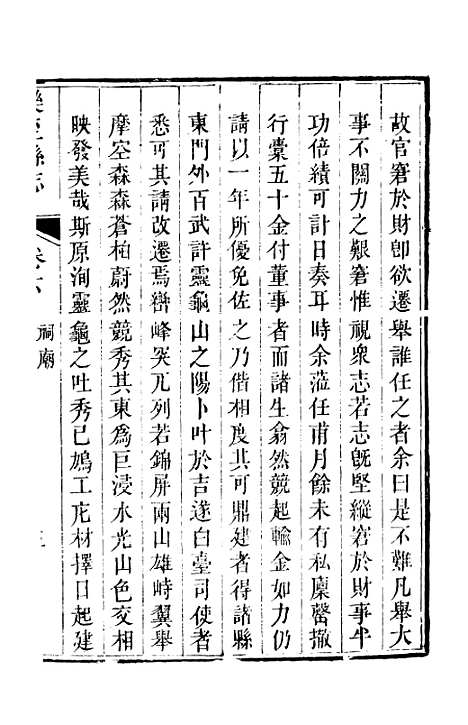 故官窘於財卽欲遷舉誰任之者余曰是不難凡舉大
事不關力之艱窘惟視衆志若志旣堅縱窘於財事半
功倍績可計日奏耳時余蒞任甫月餘未有私廩罄撤
行橐五十金付董事者而諸生翕然競起輸金如力仍
請以一年所優免佐之乃偕相度其可鼎建者得諸縣
東門外百武許靈龜山之陽卜叶於吉遂白臺司使者
悉可其請改遷焉巒峰突兀列若錦屏兩山雄峙翼舉
摩空森森蒼柏蔚然競秀其東爲巨浸水光山色交相
映發美哉斯原洵靈龜之吐秀已鳩工庀材擇日起建
縣志
祠廟